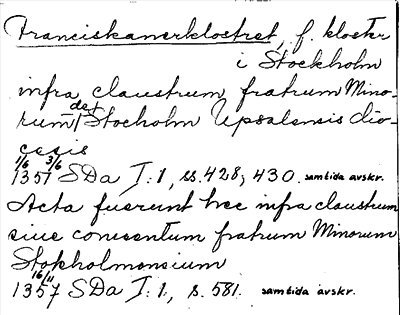 Franciskanerklostret, f. kloster
i Stockholm
infra claustrum fratrum Mino-
rum de Stocholm Upsalensis dio-
cesis
1/6 3/6
1357 SDa I:1, ss. 428, 430. samtida avskr.
Acta fuerunt hec infra claustrum
siue conuentum fratrum Minorum
Stokholmensium
16/11
1357 SDa I:1, s. 581. samtida avskr.